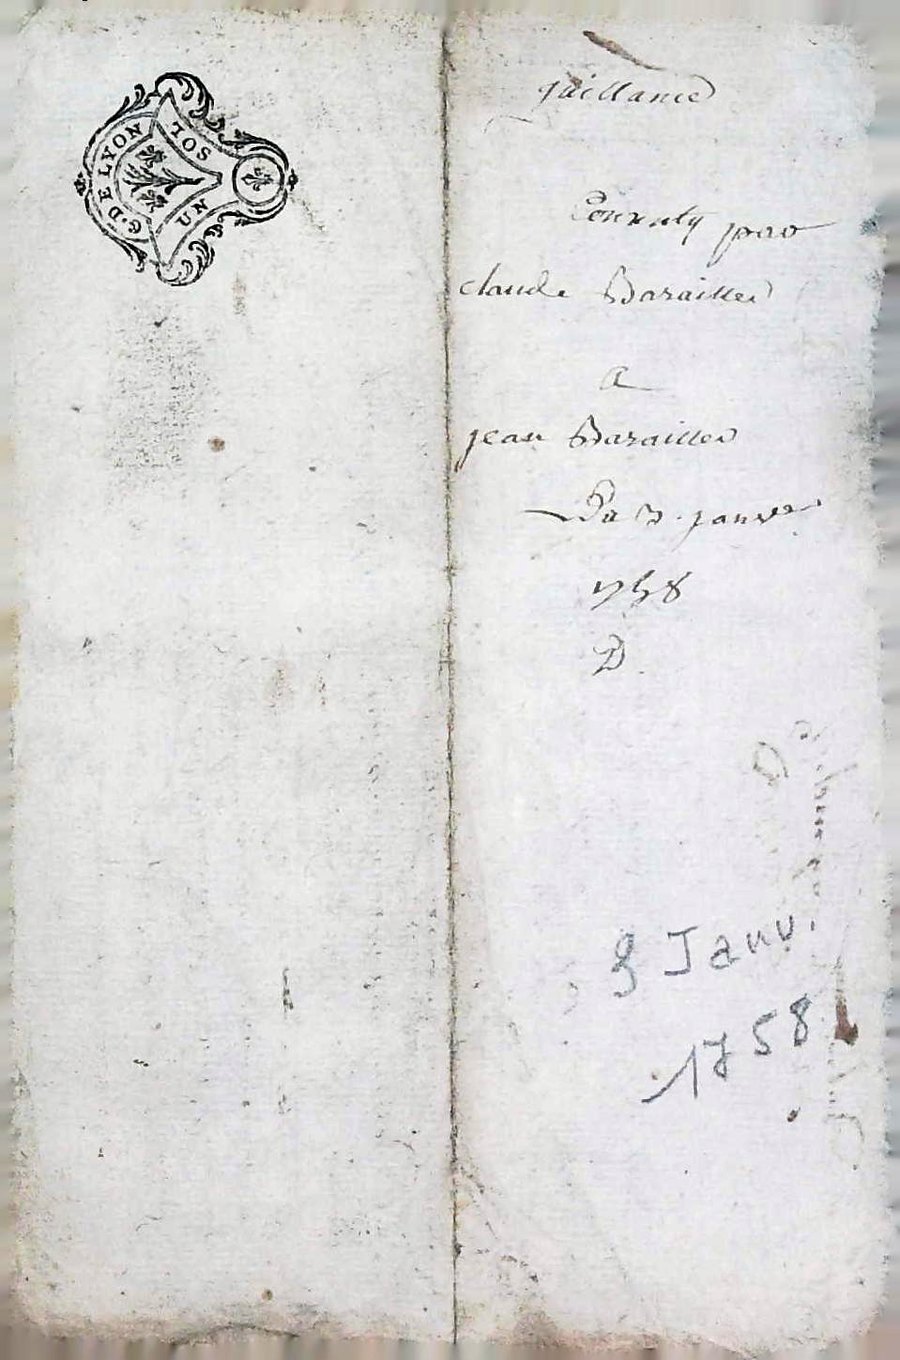 G. DE LYON
UN SOL
quittance
par
claude Barailler
a
jean Barailler
Du 3 janver
1758
D
3 Janv.
1758